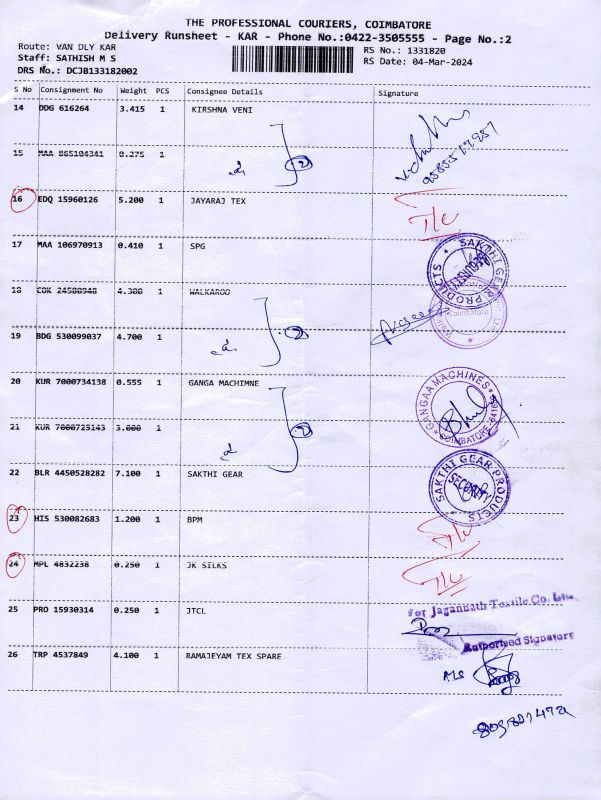 THE PROFESSIONAL COURIERS, COIMBATORE
Delivery Runsheet - KAR - Phone No.:0422-3505555 - Page No.:2
Route: VAN DLY KAR
Staff: SATHISH M S
DRS No.: DCJB133182002
RS No.: 1331820
RS Date: 04-Mar-2024
S No Consignment No Weight PCS Consignee Details Signature
14 DDG 616264 3.415 1 KIRSHNA VENI
15 MAA 865104341 0.275 1
16 EDQ 15960126 5.200 1 JAYARAJ TEX
17 MAA 106970913 0.410 1 SPG
SAKTHI GEAR PRODUCTS
18 COK 24580948 4.300 1 WALKAROO
Coimbatore
19 BDG 530099037 4.700 1
20 KUR 7000734138 0.555 1 GANGA MACHIMNE
GANGAA MACHINES
COIMBATORE
21 KUR 7000725143 3.000 1
22 BLR 4450528282 7.100 1 SAKTHI GEAR
SAKTHI GEAR PRODUCTS
SECURITY
23 HIS 530082683 1.200 1 BPM
24 MPL 4832238 0.250 1 JK SILKS
25 PRO 15930314 0.250 1 JTCL
For Jagannath Textile Co. Ltd
Authorised Signatory
26 TRP 4537849 4.100 1 RAMAJEYAM TEX SPARE